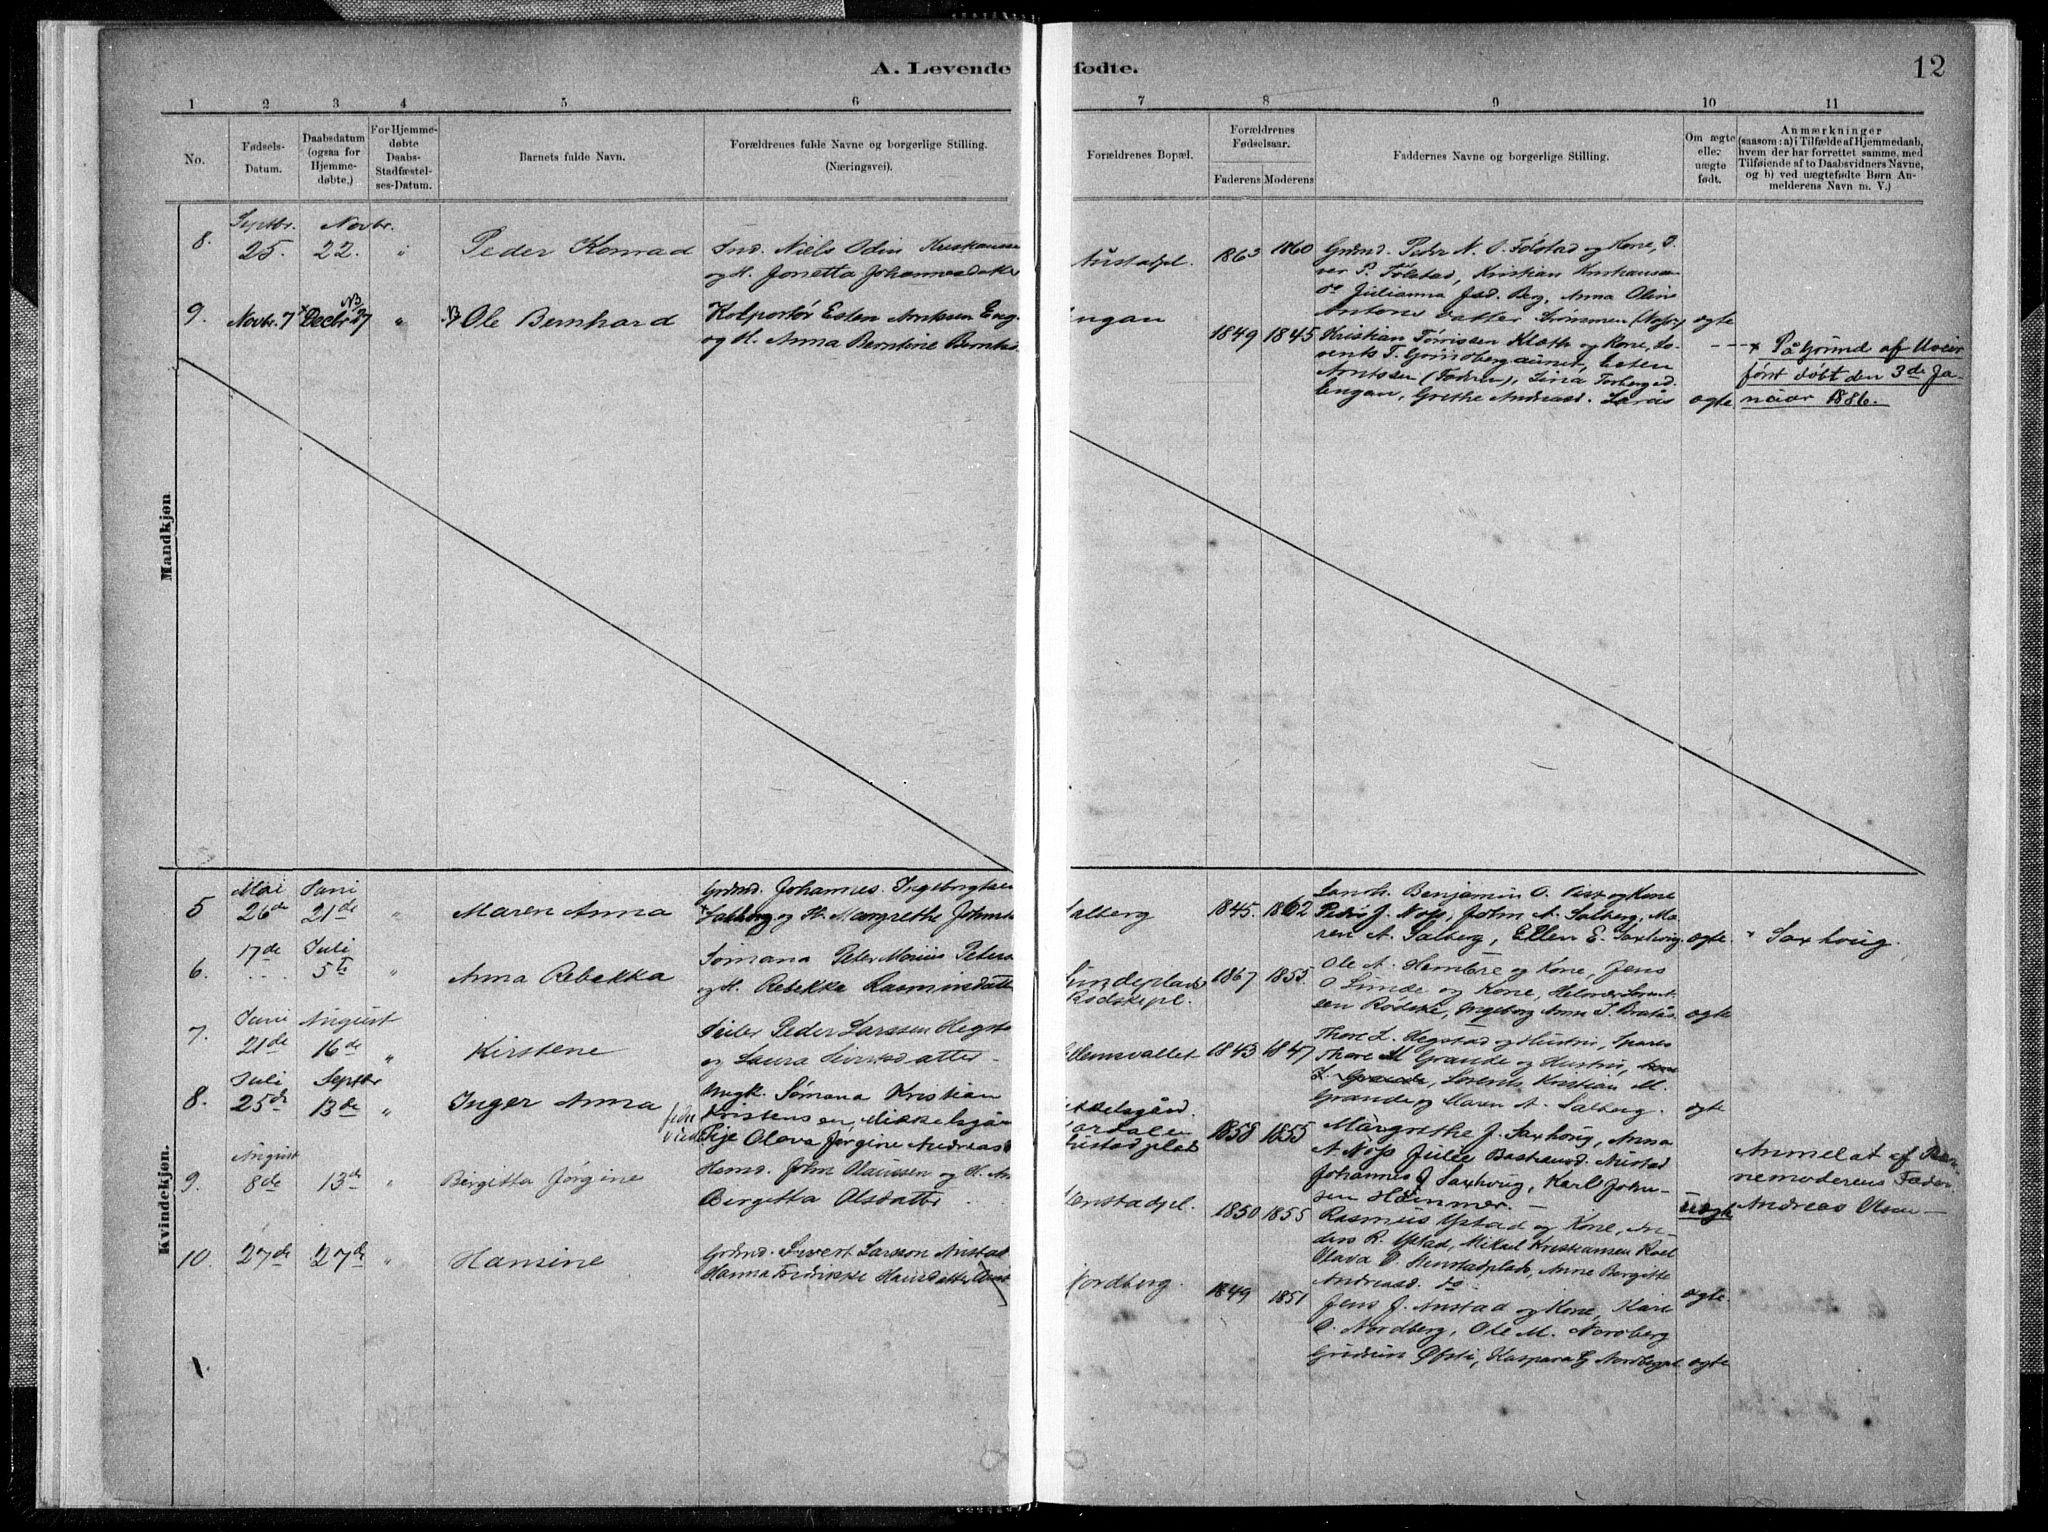 A. Levende fødte.
12
1 2 3 4 5 6 7 8 9 10 11
No.
Fødsels-Datum.
Daabsdatum (ogsaa for Hjemme-døbte.)
For Hjemme-døbte Daabs-Stadfæstel-ses-Datum.
Barnets fulde Navn.
Forældrenes fulde Navne og borgerlige Stilling.
(Næringsvei).
Forældrenes Bopæl.
Forældrenes Fødselsaar.
Faderens Moderens
Faddernes Navne og borgerlige Stilling.
Om ægte eller uægte født.
Anmærkninger
(saasom: a) i Tilfælde af Hjemmedaab,
hvem der har forrettet samme, med
Tilføiende af to Daabsvidners Navne,
og b) ved uægtefødte Børn An-
melderens Navn m. V.)
Mandkjøn
8. Septbr. 25. Novbr. 22. " Peder Konrad
Ind. Niels Odin Kristiansen
og H. Jonetta Johannesdatter
Austadpl. 1863 1860
Grbmd. Peder N. P. Folstad og Kone, I-
ver P. Folstad, Kristian Kristiansen
do Julianna Jsd. Berg, Anna Olin
Antons datter Strømmen (Nøss) ægte
9. Novbr. 7 x Decbr. 27 NB " NB Ole Bernhard
Kolportør Esten Arntsen Eng
og H. Anna Berntine Berntsd.
Engan 1849 1845
Kristian Tørrissen Kleth og Kone, Lo-
rents T. Grindbergaunet, Esten
Arntssen (Faderen), Sina Torbergsd.
Engan, Grethe Andreasd. Saraas ægte
x På Grund af Uveir
først døbt den 3de Ja-
nuar 1886.
Kvindekjøn.
5 Mai 26de Juni 21de " Maren Anna
Grbmd. Johannes Ingebrigtsen
x Salberg og H. Margrethe Johnsd.
Salberg 1845. 1862
Landh. Benjamin O. Vist og Kone
Peder J. Nøss, John A. Salberg, Ma-
ren A. Salberg, Ellen E. Saxhoug. ægte. x Saxhoug.
6. 17de Juli 5te " Anna Rebekka
Sømand Peter Marius Peters
og H. Rebekka Rasmusdatter
Sundeplads
Rødskjpl. 1867 1855.
Ole A. Hembre og Kone, Jens
O Sunde og Kone, Helmer Lorent-
sen Rødske, Ingeborg Anna J. Bratås ægte
7. Juni 21de August 16de " Kirstene
Feiler Peder Larssen Hegsta
og Laura Sivertsdatter -
Ellemsvallet 1843 1847
Thore L. Hegstad og Hustru, Spares
Thore M Grande og Hustru,
L. Grande, Lorents Kristian M.
Grande og Maren A. Salberg. ægte
8. Juli 25de Septbr 13de " Inger Anna
Ungk. Sømand Kristian
Kristensen, Mikkelsgår
Pige Olava Jørgine Andreasd
1858 1855
Margrethe J. Saxhoug, Anna
A Nøss Julie Bastiansd. Austad
Johannes J Saxhoug, Karl John-
sen Hammer. - uægte
Anmeldt af Bar-
nemoderens Fader
Andreas Olsen -
9. August 8de 13de " Birgitta Jørgine
Hsmd. John Olaussen og H. An
Birgitta Olsdatter
Henstadpl. 1850 1855
Rasmus Ystad og Kone, An-
ders R. Ystad, Mikael Kristiansen Roel
Olava O. Henstadplads, Anne Bergitte
Andreasd. do ægte.
10. 27de 27de " Hansine
Grbmd. Sivert Larsson Austad
Hanna Fredrikke Hansdatter
Nordberg. 1849 1851
Jens J. Austad og Kone, Kari
O. Nordberg, Ole M. Nordberg
Gudrun Øfsti, Kaspara G. Nordbergpl. ægte